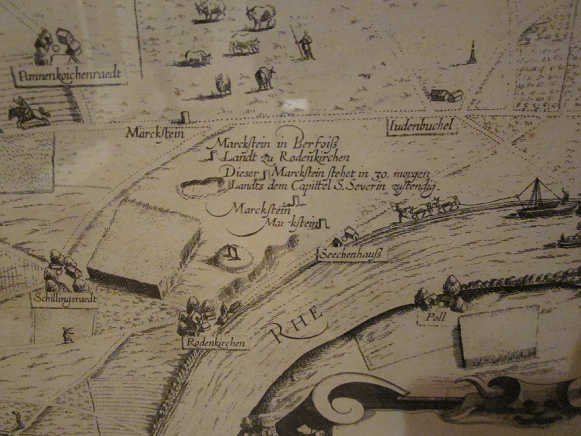 Pannenkoichenraedt
Marckstein
Iudenbuchel
Marckstein in Berfoiß
Landt zu Rodenkirchen
Dieser Marckstein stehet in 30. morgen
Landts dem Capittel S. Severin zustendig.
Marckstein
Marckstein
Seechenhauß
Schillingsraedt
Rodenkirchen
RHE
Poll